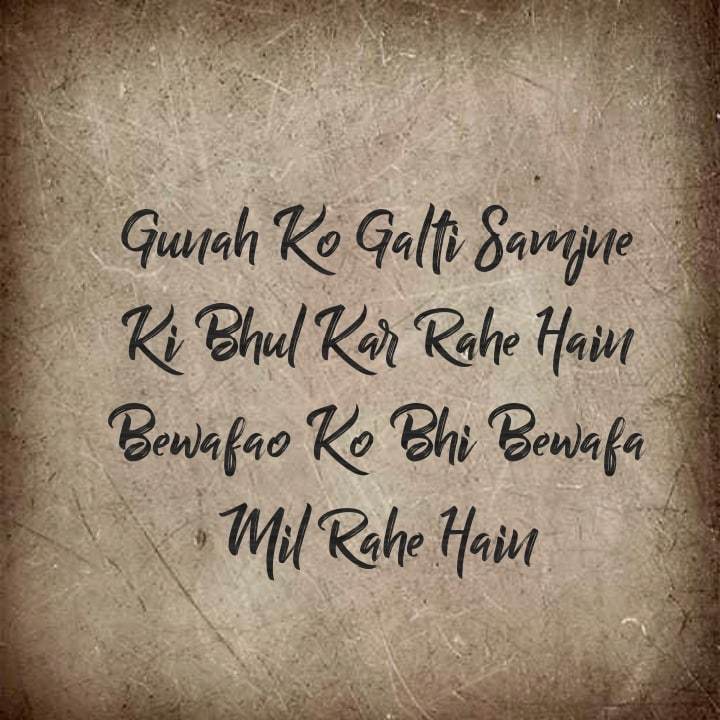 Gunah Ko Galti Samjne
Ki Bhul Kar Rahe Hain
Bewafao Ko Bhi Bewafa
Mil Rahe Hain